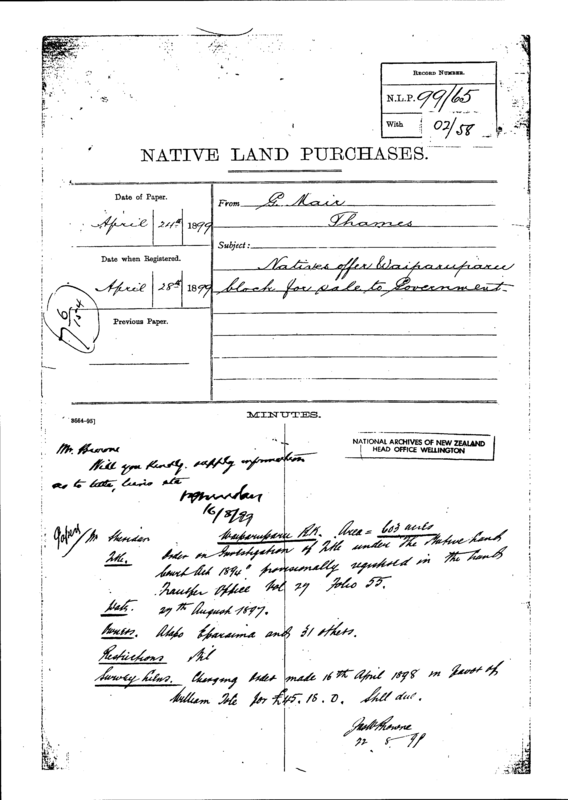 RECORD NUMBER.
N.L.P. 99/65
With 02/58
NATIVE LAND PURCHASES.
Date of Paper.
April 24th 1899
Date when Registered.
April 28th 1899
Previous Paper.
From G. Mair
Thames
Subject:
Natives offer Waiparuparu
block for sale to Government
8664-95]
MINUTES.
NATIONAL ARCHIVES OF NEW ZEALAND
HEAD OFFICE WELLINGTON
Mr. Browne
Will you kindly supply information
as to title, liens etc
16/8/99
Mr Sheridan
Waiparuparu Blk. Area = 603 acres
Title. Order on Investigation of Title under "The Native Land
Court Act 1894" provisionally registered in the Land
Transfer Office Vol 27 Folio 55.
Date. 27th August 1897.
Owners. and 31 others.
Restrictions Nil
Survey Liens. Charging Order made 16th April 1898 in favor of
William for £45. 18. 0. Still due.
Browne
22. 8. 99